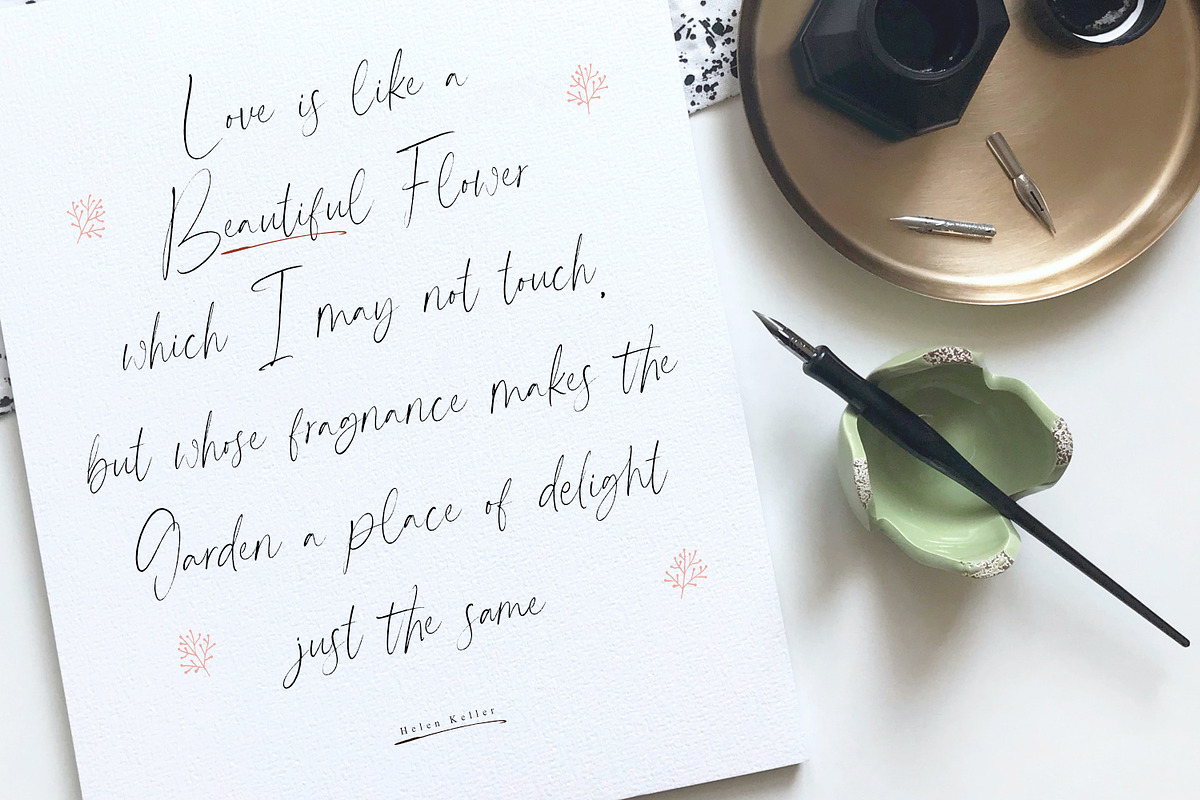 Love is like a
Beautiful Flower
which I may not touch,
but whose fragnance makes the
Garden a place of delight
just the same
Helen Keller